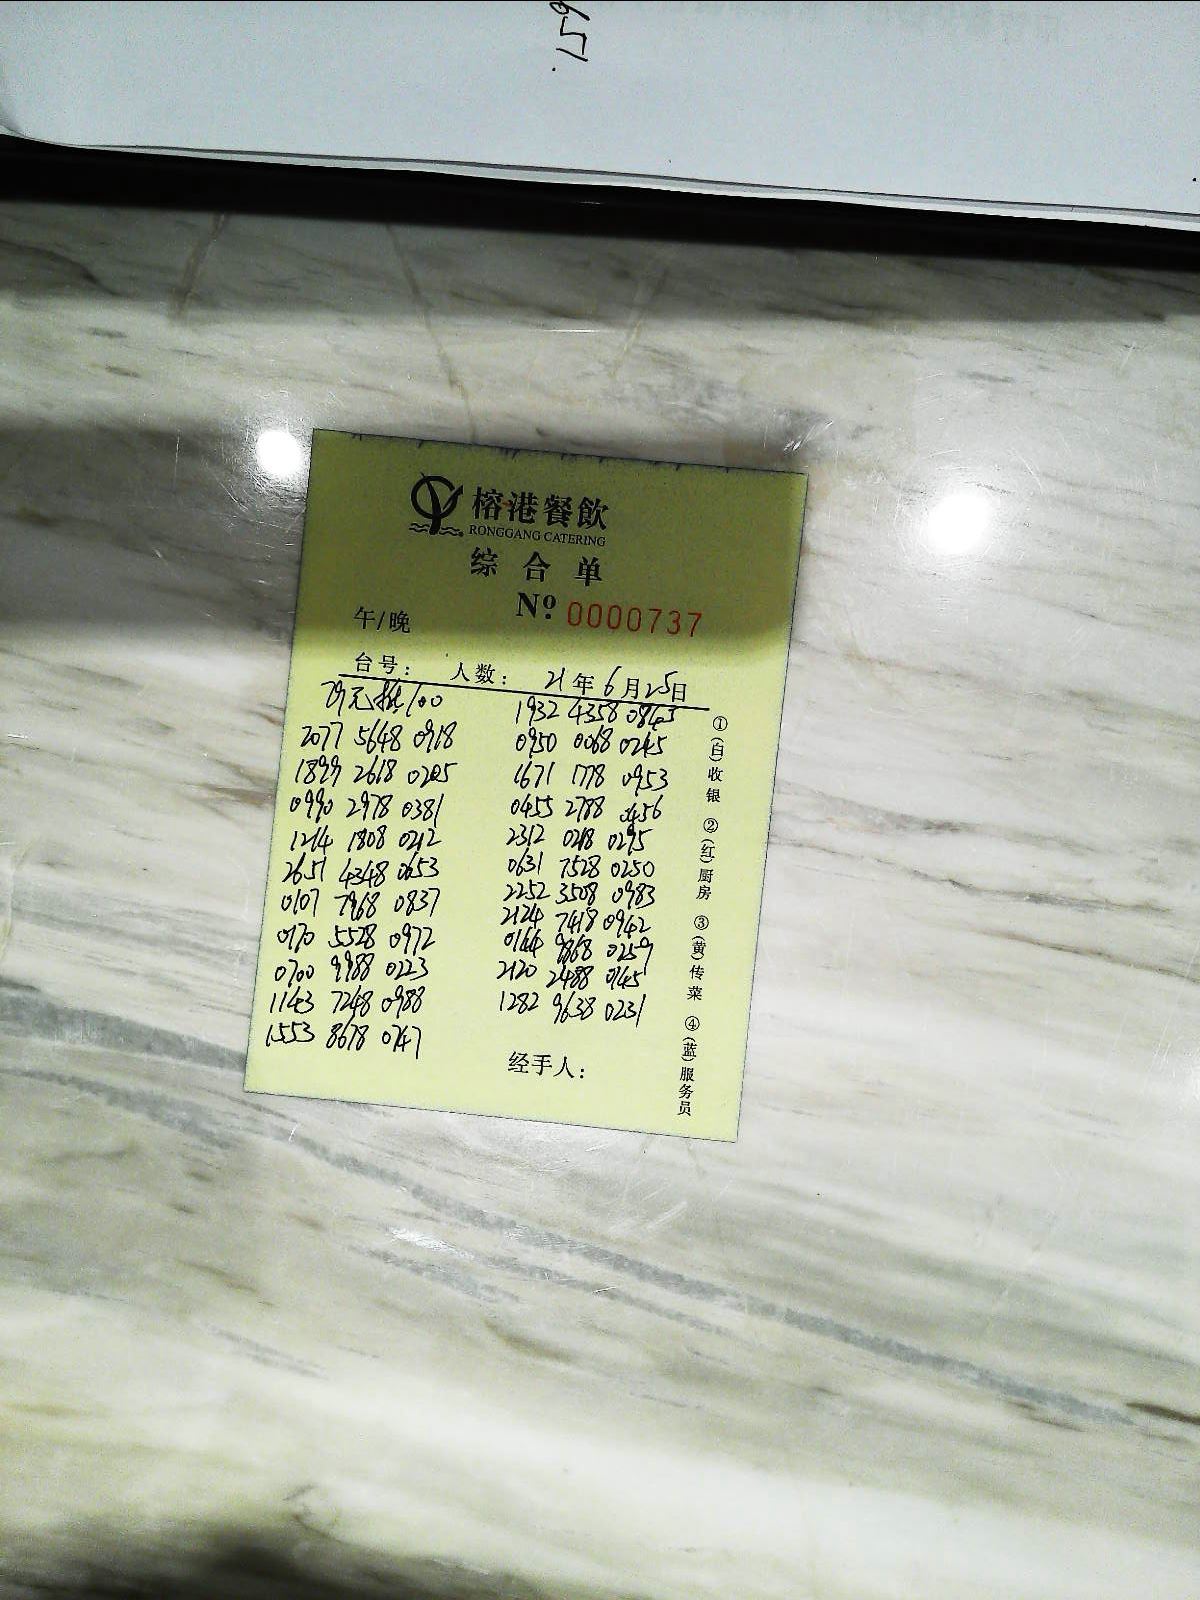 651.
榕港餐飲
RONGGANG CATERING
综合单
№ 0000737
午/晚
台号： 人数： 21年6月25日
79元抵100
2077 5648 0918
1899 2618 0205
0990 2978 0381
1214 1808 0212
2651 4348 0653
0107 7968 0837
0170 5528 0972
0700 9988 0223
1143 7248 0988
1553 8678 0747
1932 4358 0843
0950 0068 0245
1671 1778 0953
0455 2788 0456
2312 0218 0295
0631 7528 0250
2252 3508 0983
2124 7418 0942
0144 9868 0259
2120 2488 0145
1282 9638 0231
经手人：
①(白)收银 ②(红)厨房 ③(黄)传菜 ④(蓝)服务员